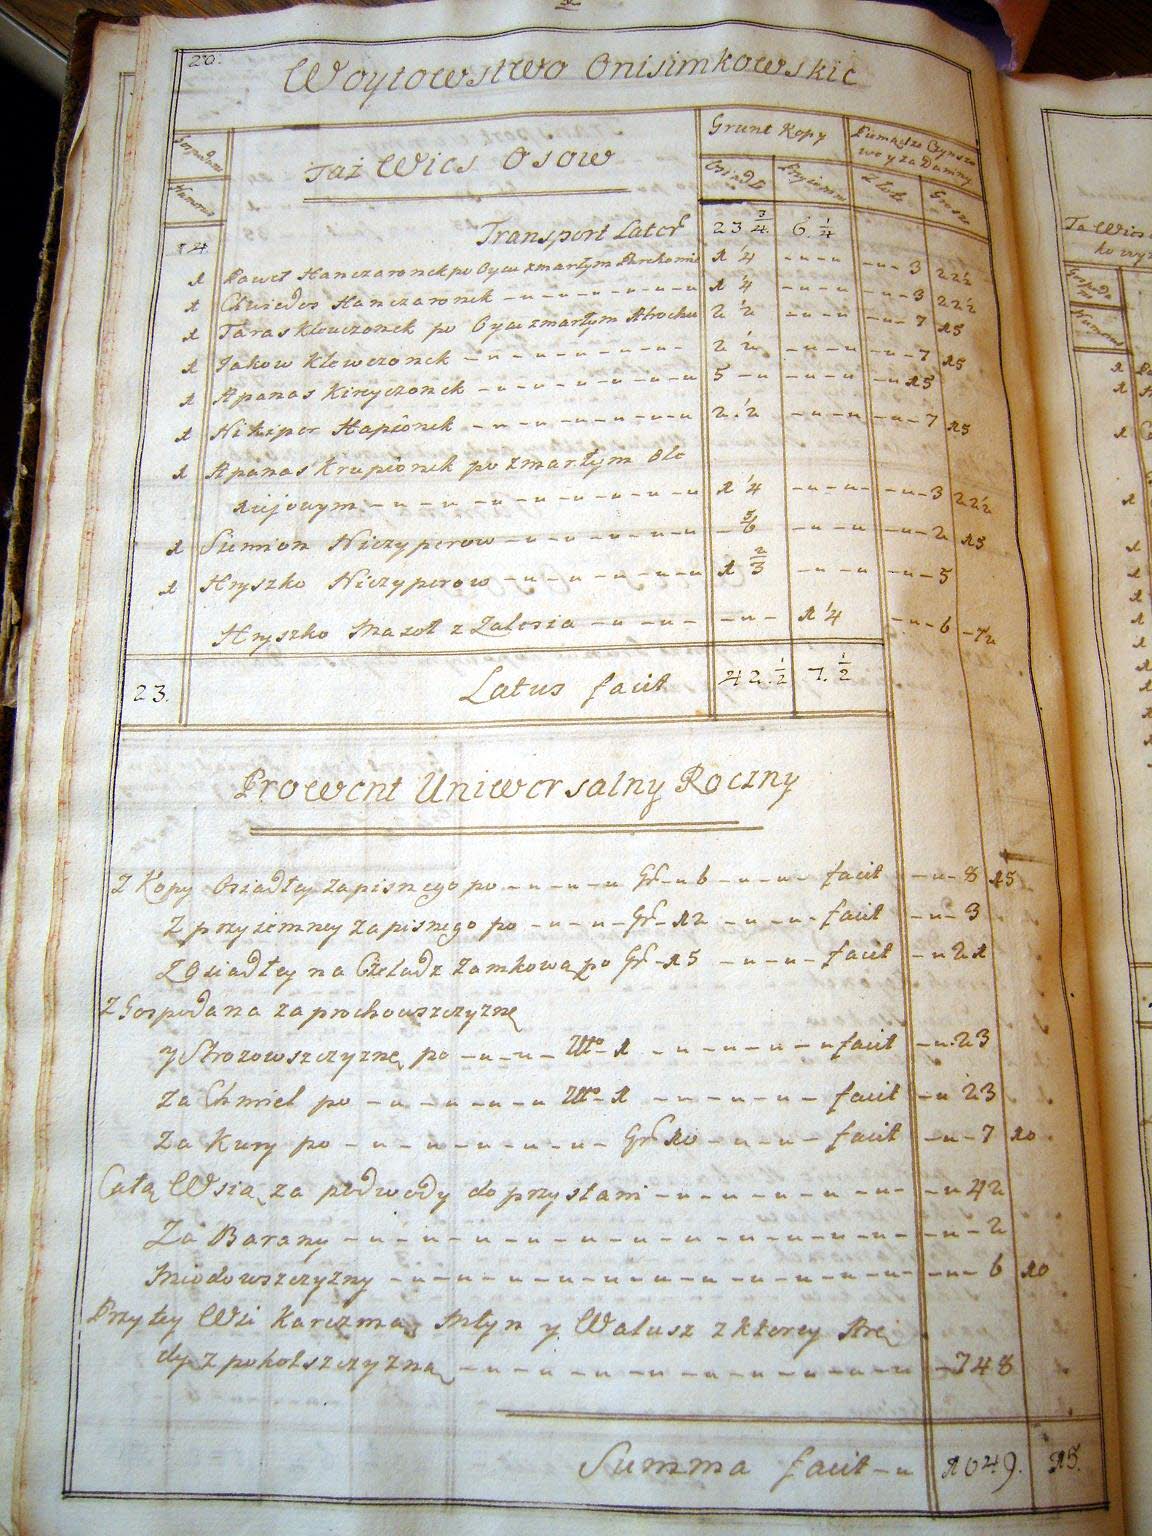 20.
Woytowstwo Onisimkowskie
Gospodarow
Numerus
Taż Wies Osow
Grunt Kopy
Osiadłe Przyiemne
Złote Grosze
14 Transport Lateris 23 3/4 6. 1/4
1 Paweł Hanczaronek po Oycu zmarłym 1 1/4 - - - 3 22 1/2
1 Chwiedos Hanczaronek 1 1/4 - - - 3 22 1/2
1 Taras Klewczonek po Oycu zmarłym Atrochu 2 1/2 - - - 7 15
1 Jakow Klewczonek 2 1/2 - - - 7 15
1 Apanas Kireyczonek 5 - - - 15
1 Nikiper Hapionek 2 1/2 - - - 7 15
1 Apanas Krupionek po zmarłym Ole
xiejowym 1 1/4 - - - 3 22 1/2
1 Siemion Niczyperow 5/6 - - - 2 15
1 Hryszko Niczyperow 1 2/3 - - - 5
Hryszko Mazoł z Zalesia - - - 1 1/4 - 6 - 7 1/2
23. Latus facit 42. 1/2 7. 1/2
Prowent Uniwersalny Roczny
Z Kopy Osiadłey zapisnego po - - - Gr 6 - - - facit - 8 15
Z przyiemney zapisnego po - - - Gr 12 - - - facit - 3
Z Osiadłey na Czeladz zamkową po Gr 15 - - - facit - 21
Z Gospodarza za prochowszczyznę
y Strozowszczyznę po - - - Złto 1 - - - facit - 23
Za Chmiel po - - - Złto 1 - - - facit - 23
Za Kury po - - - Gr 10 - - - facit - 7 20
Cała Wsia za podwody do przystani - - - 42
Za Barany - - - 2
Miodowszczyzny - - - 6 20
Przy tey Wsi Karczma, Młyn y Walusz z ktorey Arę
dy z pokotszczyzną - - - 748
Summa facit - 1049. 15.